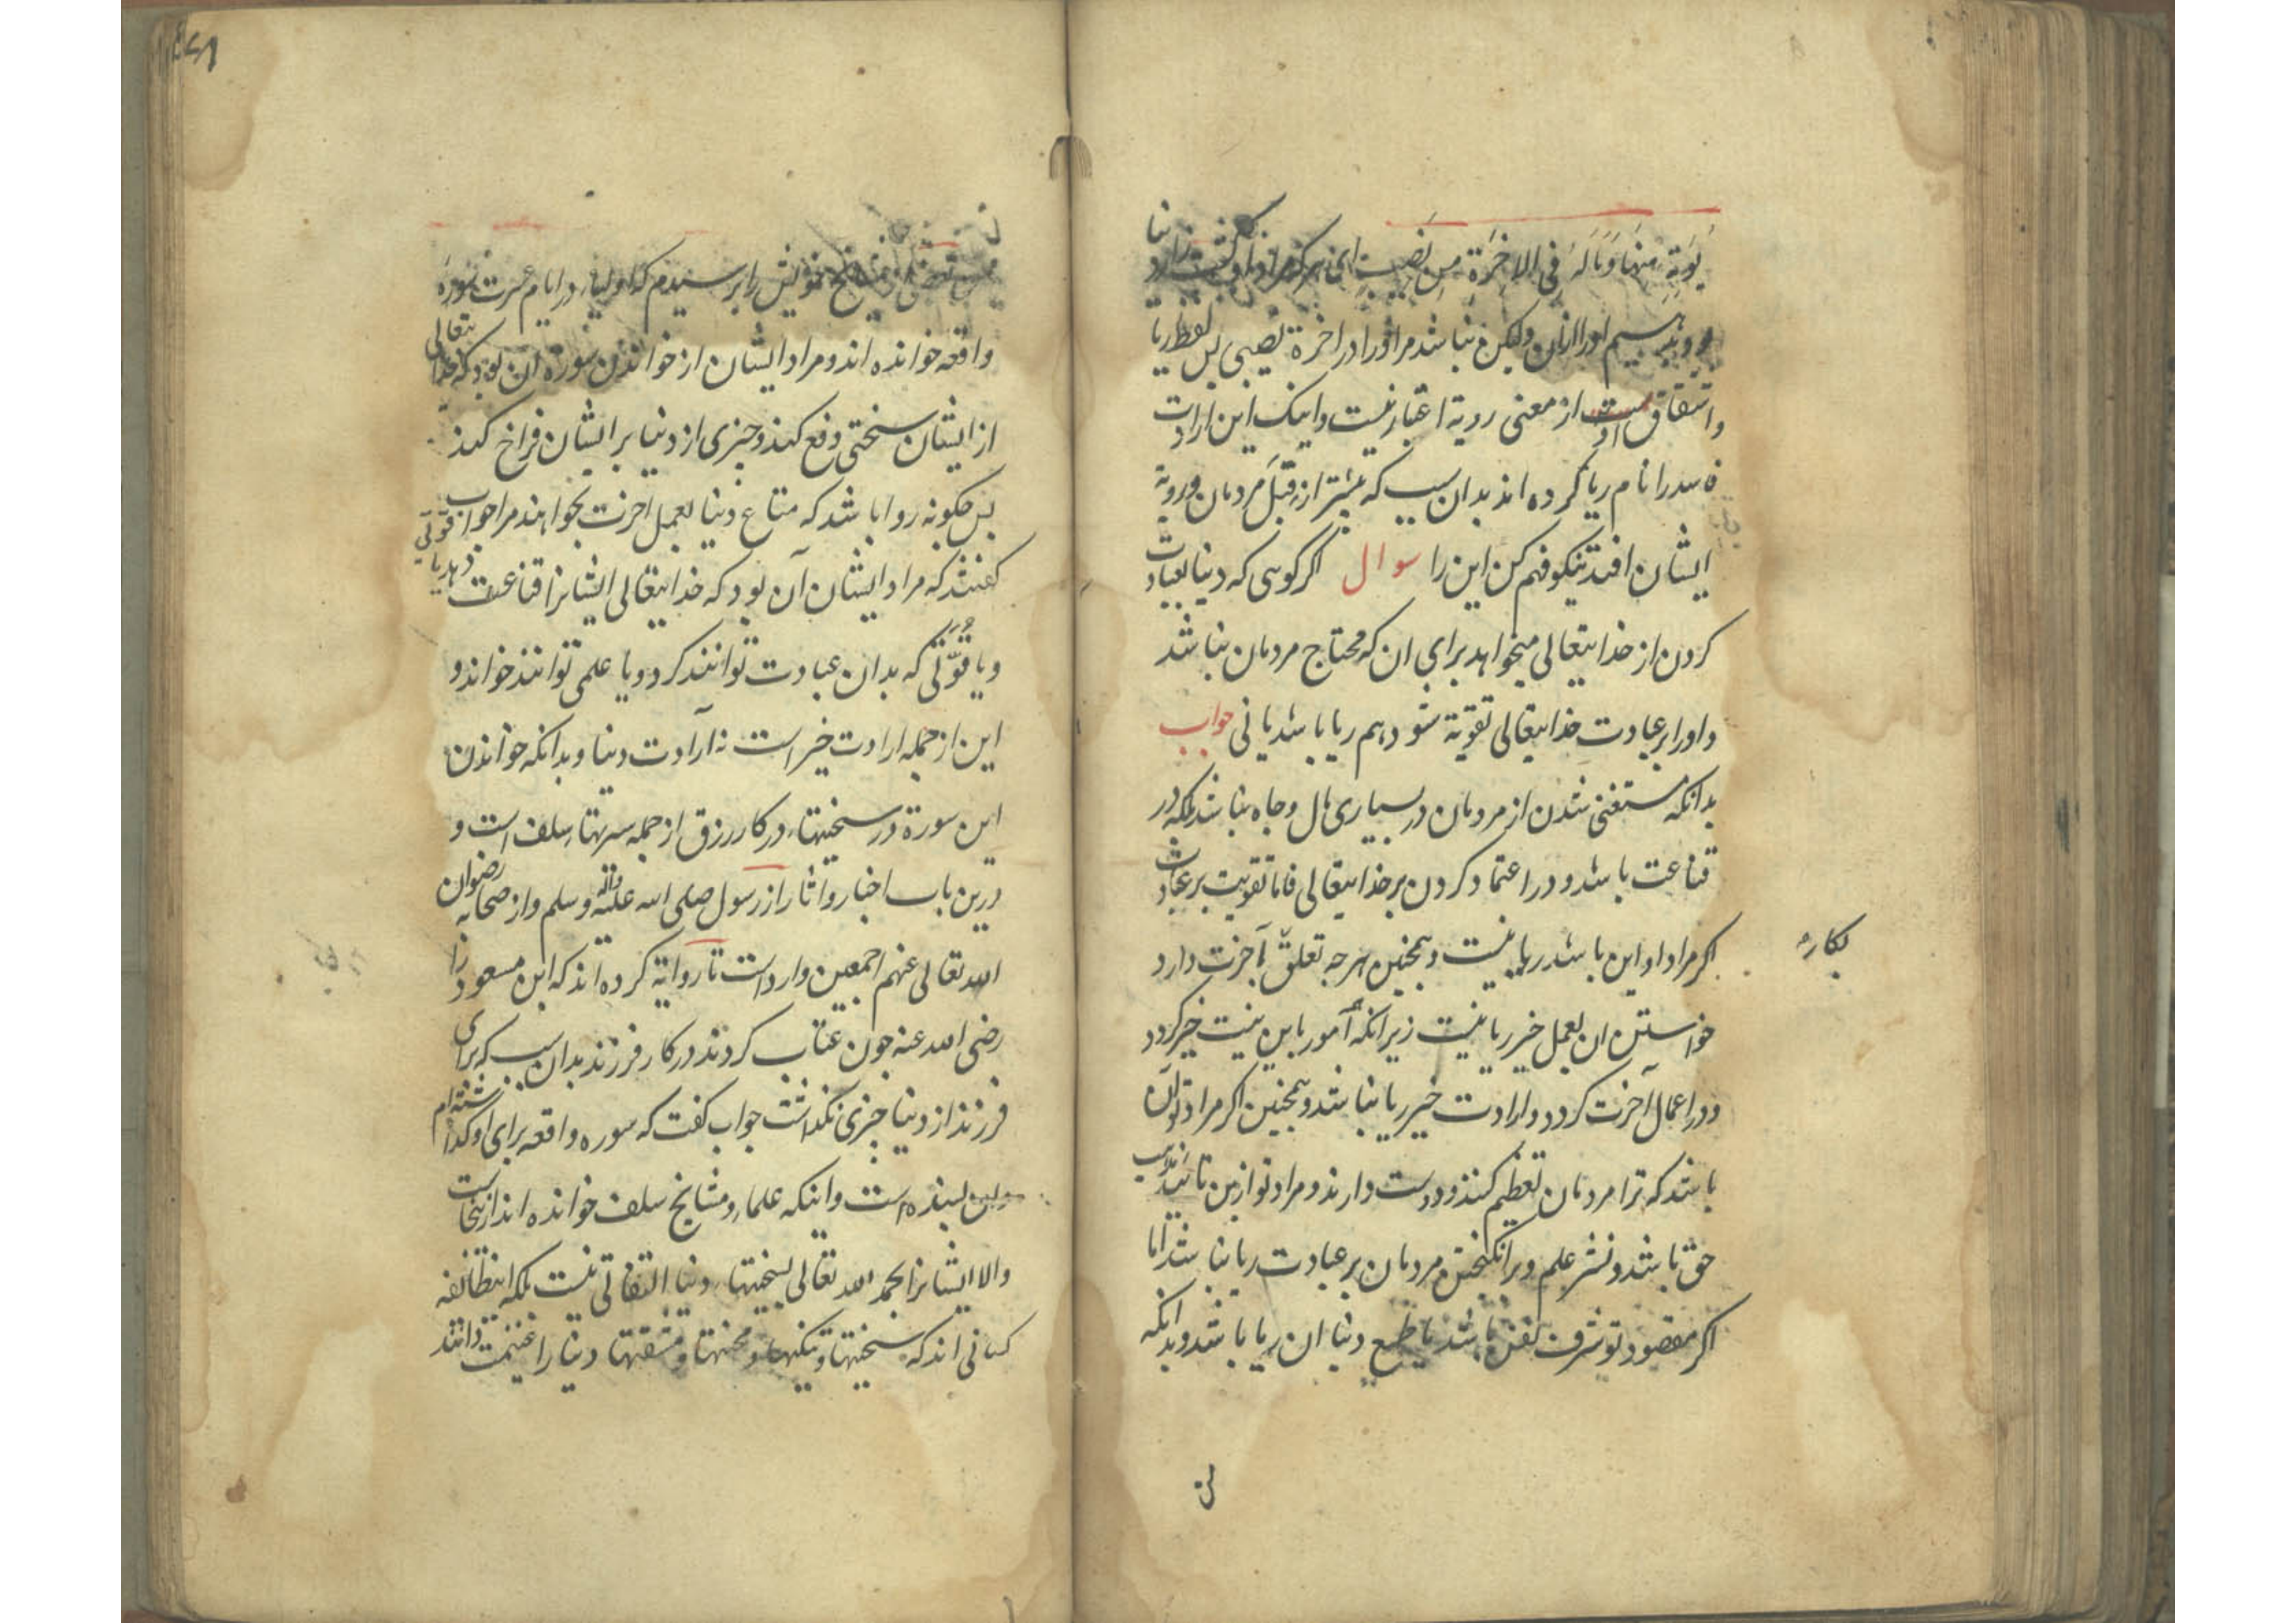 نُؤتِهِ مِنهَا وَمَا لَهُ فِی الاخِرَةِ مِن نَصِیبٍ ای هر که مراد او کشت دنیا
بود بدهیم او را ازان ولیکن نباشد مر او را در اخرة نصیبی پس لفظ ریا
و اشتقاق او از معنی رویة اعتبار نیست و اینک این ارادت
فاسد را نام ریا کرده اند بدان سبب که بیشتر از قبل مردمان و رویة
ایشان افتد نیکو فهم کن این را سوال اکر کویی که دنیا بعبادت
کردن از خدایتعالی میخواهد برای ان که محتاج مردمان نباشد
و او را بر عبادت خدایتعالی تقویة شود هم ریا باشد یا نی جواب
بدانکه مستغنی شدن از مردمان در بسیاری مال و جاه نباشد بلکه در
قناعت باشد و در اعتماد کردن بر خدایتعالی فاما تقویت بر عبادت
اکر مراد او این باشد ریا نیست و همچنین هرچه تعلق بآخرت دارد
بکاره
خواستن ان بعمل خیر ریا نیست زیرانکه آمور باین نیت خیر کردد
و در اعمال آخرت کردد و ارادت خیر ریا نباشد و همچنین اکر مراد تو آن
باشد که ترا مردمان تعظیم کنند و دوست دارند و مراد تو ازین تائید مذهب
حق باشد و نشر علم و برانکیختن مردمان بر عبادت ریا نباشد اما
اکر مقصود تو شرف نفس باشد یا طمع دنیا ان ریا باشد و بدانکه
مشایخ خویش را پرسیدم که اولیا در ایام عسرت سورة
واقعه خوانده اند و مراد ایشان از خواندن سورة ان بود که خدایتعالی
از ایشان سختی دفع کند و چیزی از دنیا بر ایشان فراخ کند
پس چکونه روا باشد که متاع دنیا بعمل اخرت بخواهند مرا جواب
کفتند که مراد ایشان آن بود که خدایتعالی ایشانرا قناعت دهد یا قُوّتی
و یا قُوَّتی که بدان عبادت توانند کرد و یا علمی توانند خواند و
این از جمله ارادت خیر است نه آرادت دنیا و بدانکه خواندن
این سورة در سختیهاء در کار رزق از جمله سرتهاء سلف است و
درین باب اخبار و اثار از رسول صلی الله علیه واله وسلم و از صحابه رضوان
الله تعالی عنهم اجمعین وارد است تا روایة کرده اند که ابن مسعود را
رضی الله عنه چون عتاب کردند در کار فرزند بدان سبب که برای
فرزند از دنیا چیزی نکذاشت جواب کفت که سوره واقعه برای او کذاشته ام
بسنده است و اینکه علماء و مشایخ سلف خوانده اند ازینجاست
والا ایشانرا بحمد الله تعالی بسختیهاء دنیا التفاتی نیست بلکه اینطائفه
کسانی اند که سختیها و تنکیها و محنتها و مشقتها دنیا را غنیمت دانند